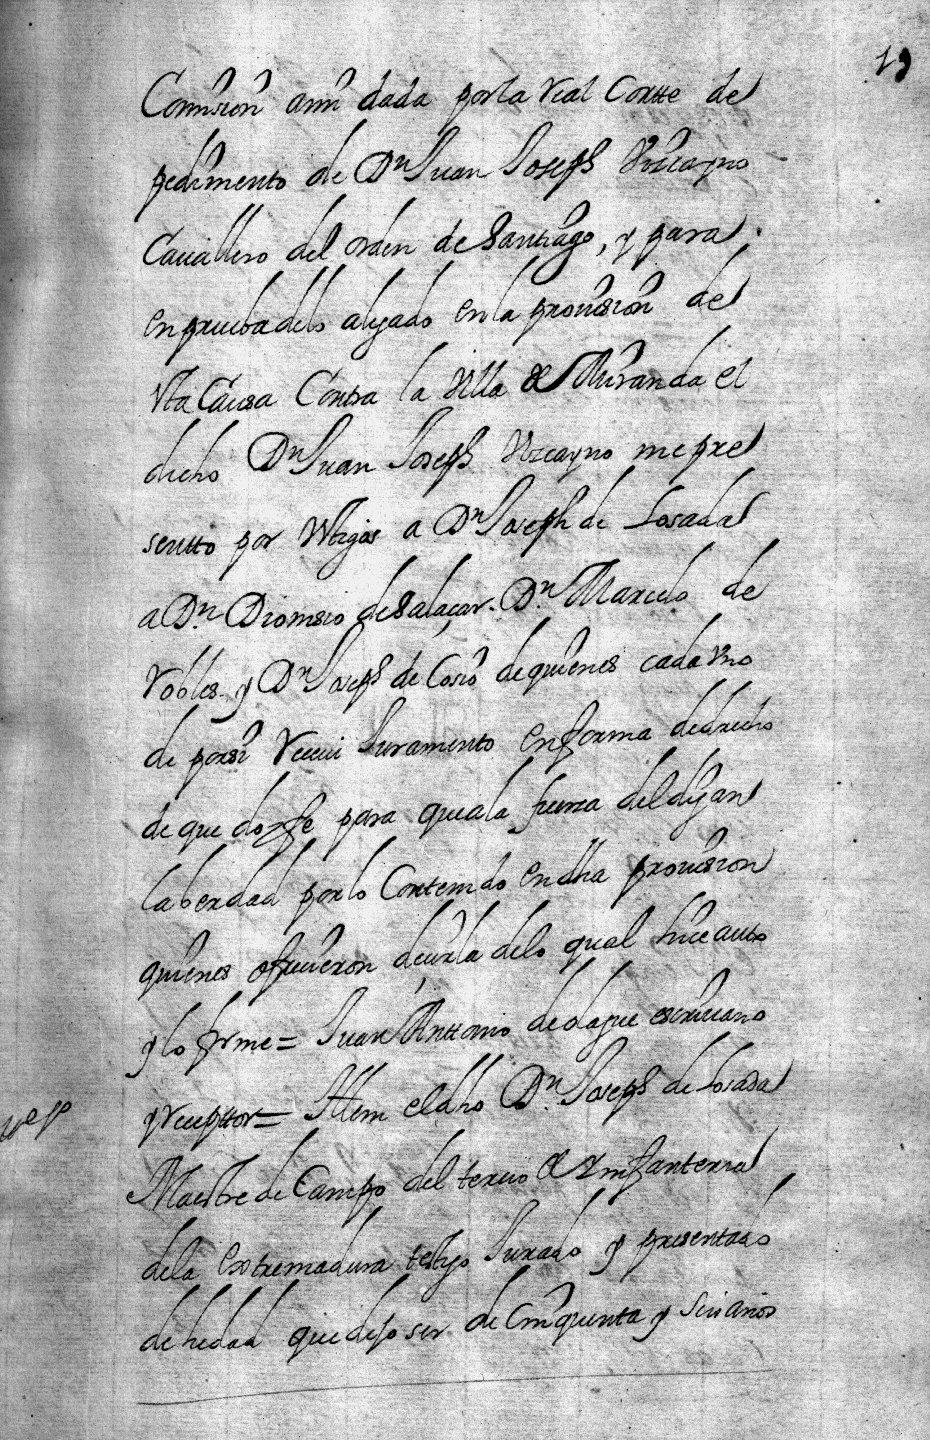 19
Comission ami dada por la real Cortte de
pedimento de Dn Juan Joseph Vizcayno
Cauallero del orden de Santiago, y para
en prueba de lo alegado en la prouission de
Vta Causa Contra la Villa de Miranda el
dicho Dn Juan Joseph Vizcayno me pre
sentto por Vttigos a Dn Joseph de Losada
a Dn Dionisio de Salaçar. Dn Marcelo de
robles y Dn Joseph de Cosio de quienes cada Vno
de por si Reciui Juramento en forma de derecho
de que doy fe para que a la fuerza del digan
la berdad por lo Contenido en dha prouission
quienes ofrecieron deçirla de lo qual hice auto
y lo firme = Juan Anttonio de olague escriuano
y receptor = Ittem el dho Dn Joseph de Losada
Maestre de Campo del tercio de Ynfanteria
de la extremadura testigo Jurado y presentado
de hedad que dijo ser de Cinquenta y seis años